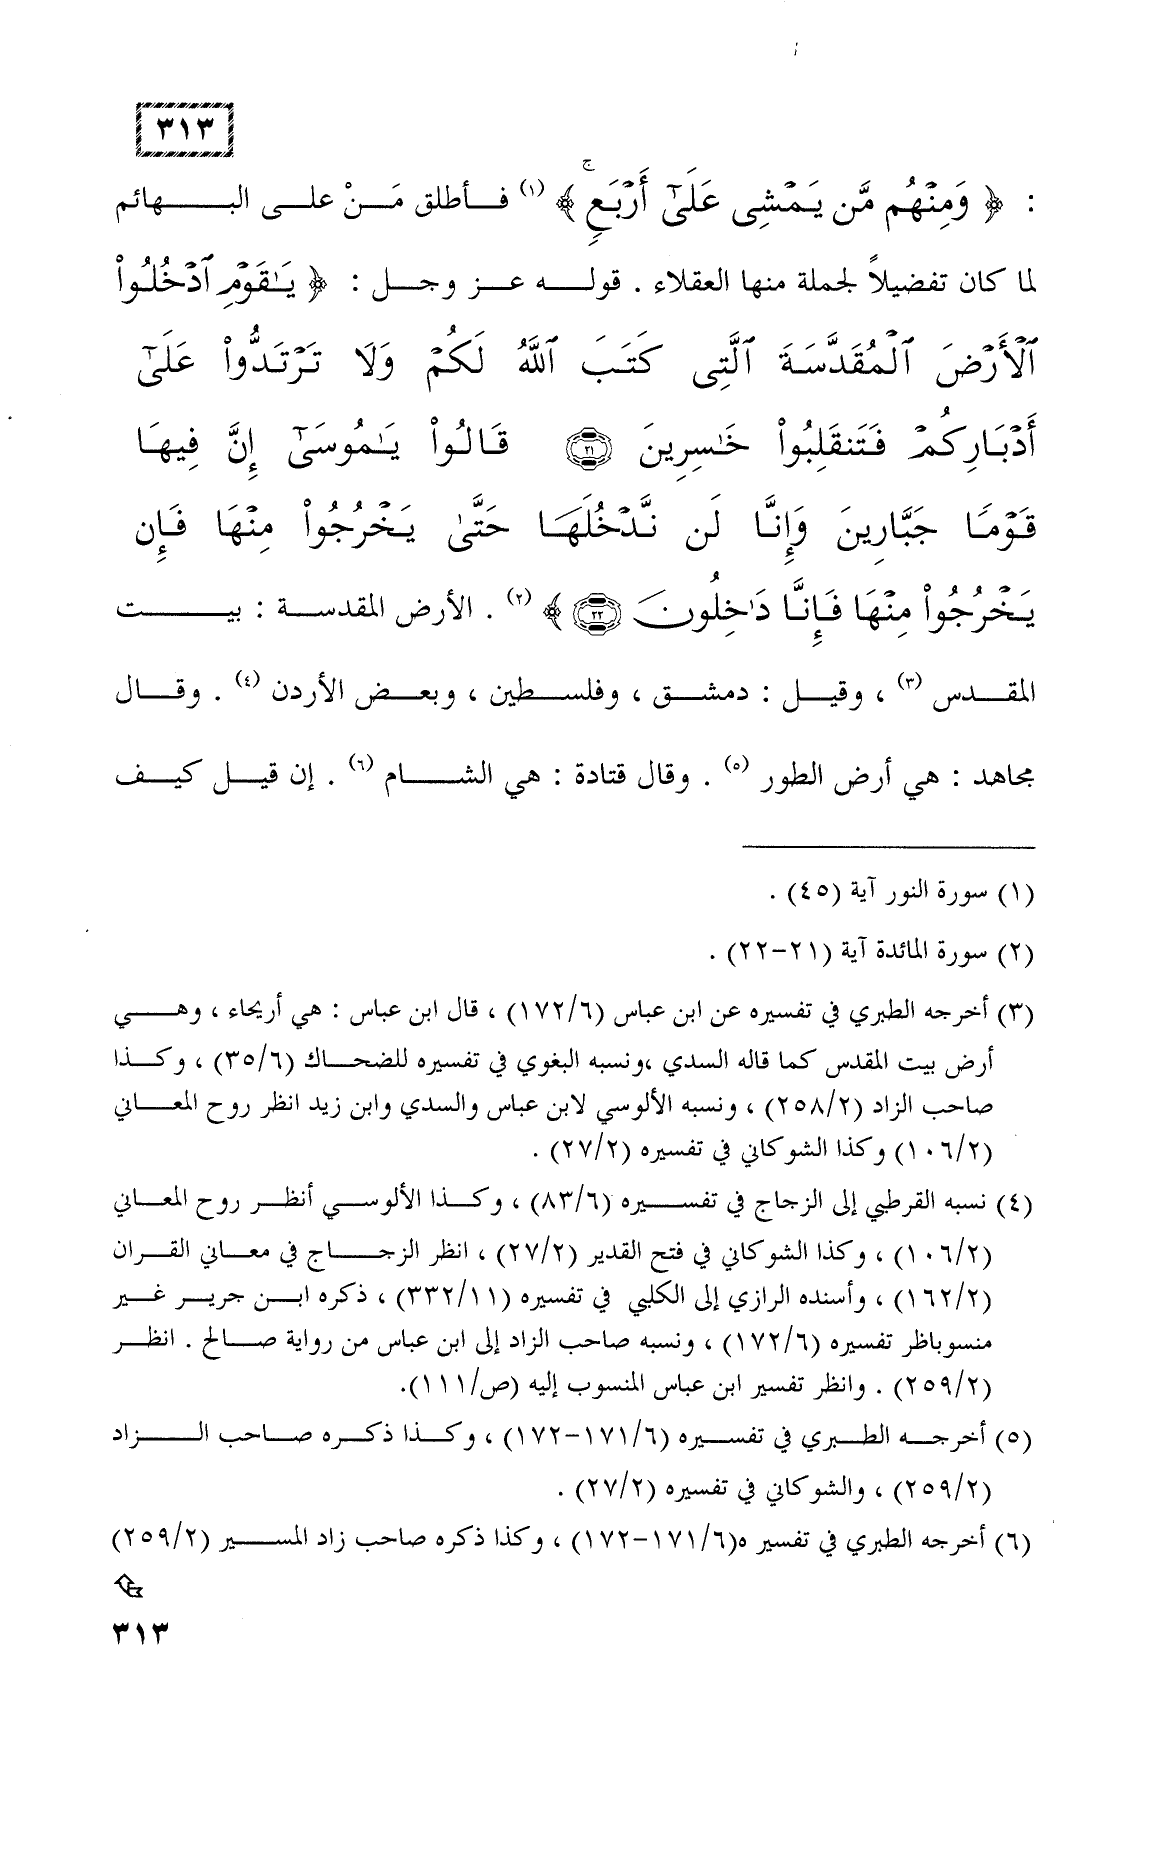 ٣١٣
: ﴿ وَمِنْهُم مَّن يَمْشِى عَلَىٰٓ أَرْبَعٍۚ ﴾ (١) فأطلق مَنْ على البهائم
لما كان تفضيلاً لجملة منها العقلاء . قوله عز وجل : ﴿ يَـٰقَوْمِ ٱدْخُلُوا۟
ٱلْأَرْضَ ٱلْمُقَدَّسَةَ ٱلَّتِى كَتَبَ ٱللَّهُ لَكُمْ وَلَا تَرْتَدُّوا۟ عَلَىٰٓ
أَدْبَارِكُمْ فَتَنقَلِبُوا۟ خَـٰسِرِينَ ٢١ قَالُوا۟ يَـٰمُوسَىٰٓ إِنَّ فِيهَا
قَوْمًا جَبَّارِينَ وَإِنَّا لَن نَّدْخُلَهَا حَتَّىٰ يَخْرُجُوا۟ مِنْهَا فَإِن
يَخْرُجُوا۟ مِنْهَا فَإِنَّا دَٰخِلُونَ ٢٢ ﴾ (٢) . الأرض المقدسة : بيت
المقدس (٣) ، وقيل : دمشق ، وفلسطين ، وبعض الأردن (٤) . وقال
مجاهد : هي أرض الطور (٥) . وقال قتادة : هي الشام (٦) . إن قيل كيف
(١) سورة النور آية (٤٥) .
(٢) سورة المائدة آية (٢١-٢٢) .
(٣) أخرجه الطبري في تفسيره عن ابن عباس (١٧٢/٦) ، قال ابن عباس : هي أريحاء ، وهي
أرض بيت المقدس كما قاله السدي ،ونسبه البغوي في تفسيره للضحاك (٣٥/٦) ، وكذا
صاحب الزاد (٢٥٨/٢) ، ونسبه الألوسي لابن عباس والسدي وابن زيد انظر روح المعاني
(١٠٦/٢) وكذا الشوكاني في تفسيره (٢٧/٢) .
(٤) نسبه القرطبي إلى الزجاج في تفسيره (٨٣/٦) ، وكذا الألوسي أنظر روح المعاني
(١٠٦/٢) ، وكذا الشوكاني في فتح القدير (٢٧/٢) ، انظر الزجاج في معاني القران
(١٦٢/٢) ، وأسنده الرازي إلى الكلبي في تفسيره (٣٣٢/١١) ، ذكره ابن جرير غير
منسوباظر تفسيره (١٧٢/٦) ، ونسبه صاحب الزاد إلى ابن عباس من رواية صالح . انظر
(٢٥٩/٢) . وانظر تفسير ابن عباس المنسوب إليه (ص/١١١).
(٥) أخرجه الطبري في تفسيره (١٧١/٦-١٧٢) ، وكذا ذكره صاحب الزاد
(٢٥٩/٢) ، والشوكاني في تفسيره (٢٧/٢) .
(٦) أخرجه الطبري في تفسير ه(١٧١/٦-١٧٢) ، وكذا ذكره صاحب زاد المسير (٢٥٩/٢)
٣١٣